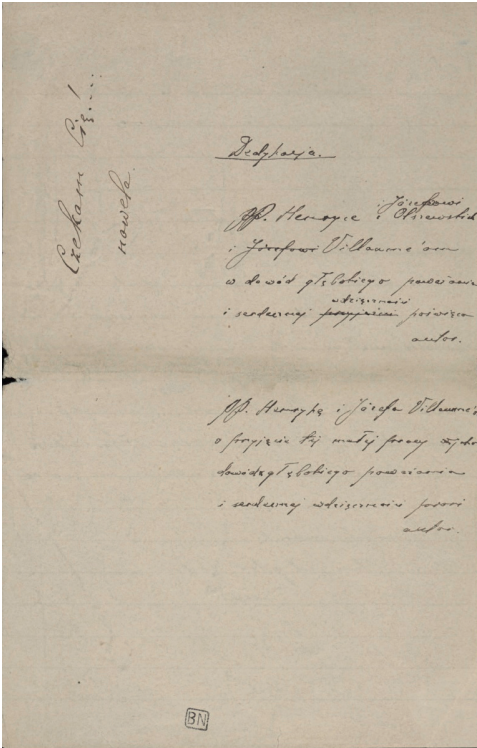 Czekam Cię!...
nowela.
Dedykacja.
i Józefowi
PP. Henryce i Olszewskich
i Józefowi Villaume'om
w dowód głębokiego poważania
wdzięczności
i serdecznej przyjaźni poświęca
autor.
PP. Henrykę i Józefa Villaume'
o przyjęcie tej małej pracy
dowód głębokiego poważania
i serdecznej wdzięczności prosi
autor.
BN